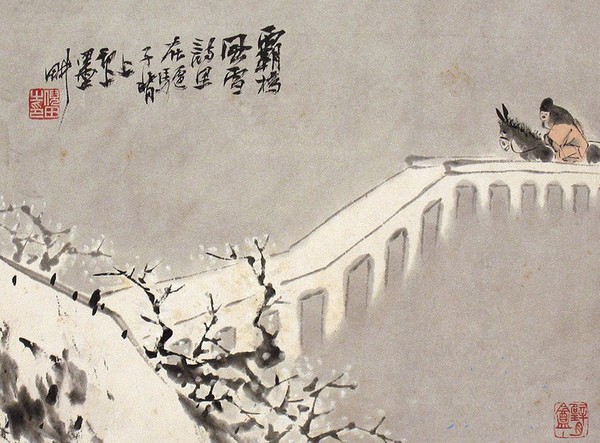 霸橋
風雪
詩思
在驢
子背
上
墨
畊